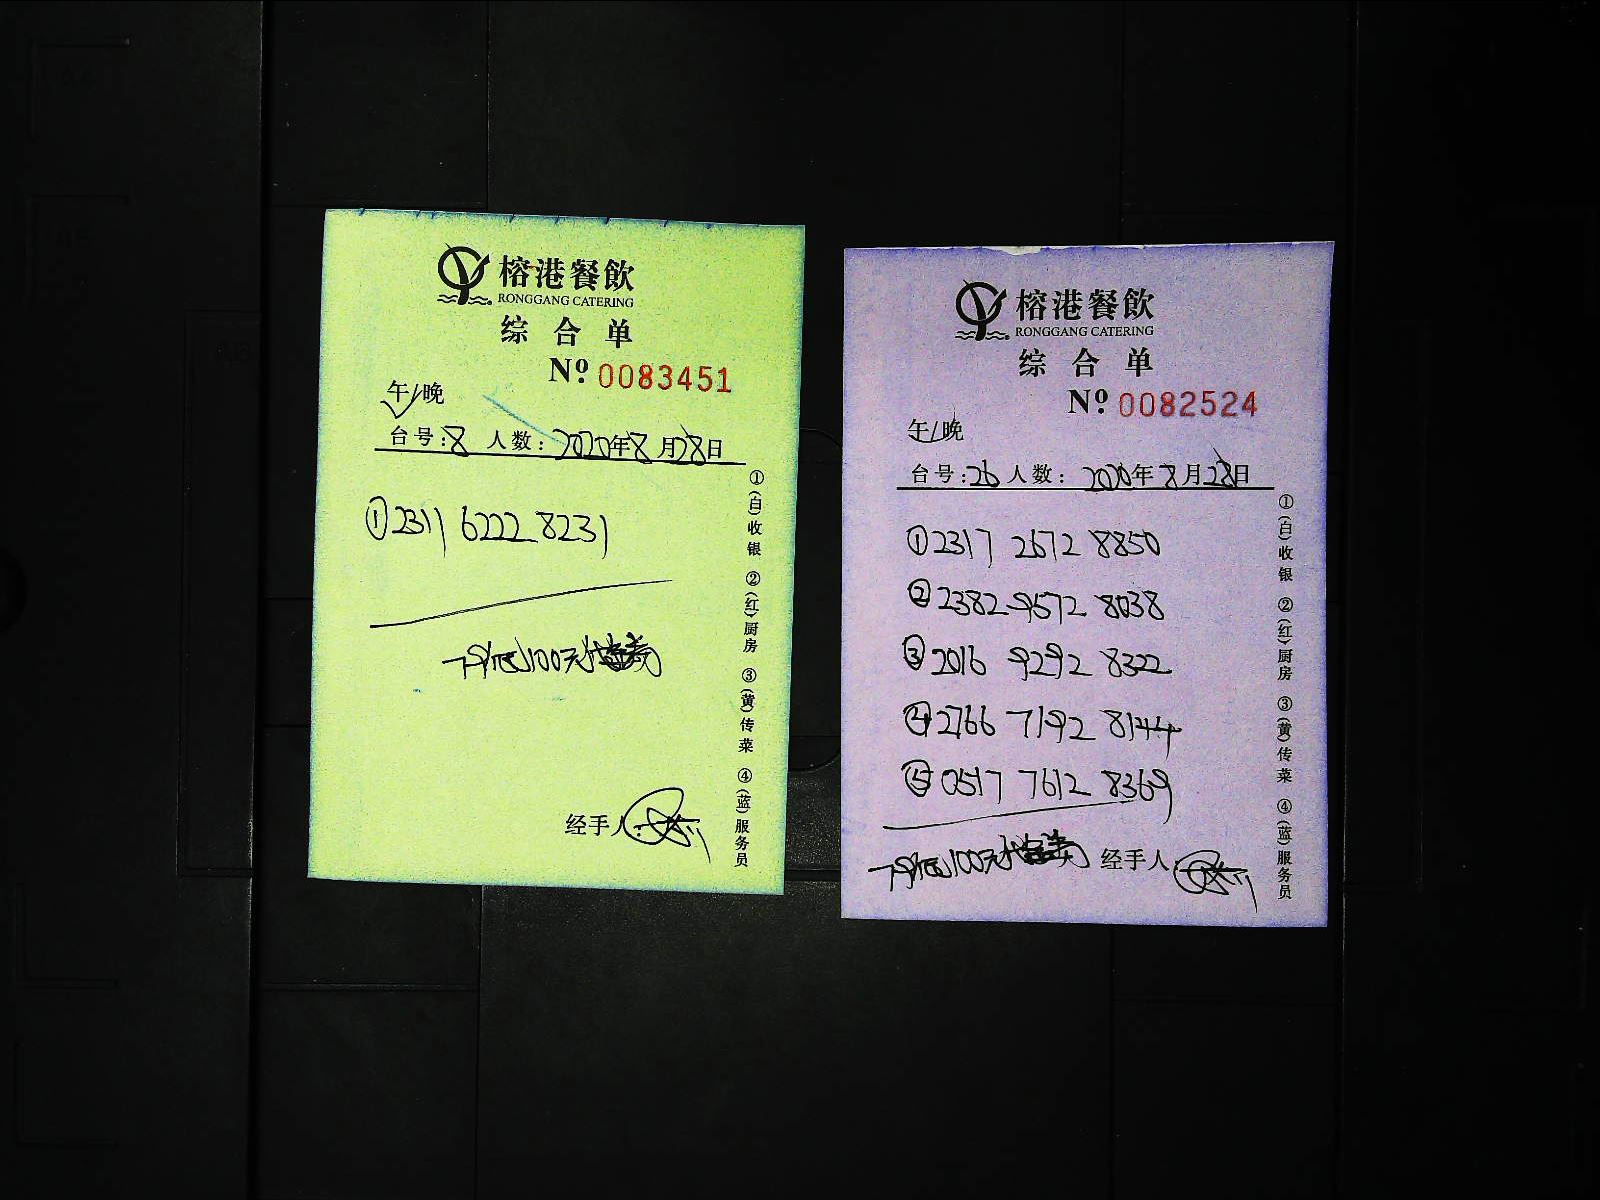 榕港餐飲
RONGGANG CATERING
综合单
Nº 0083451
午/晚
台号:8 人数: 2020年8月28日
①2311 6222 8231
100元
经手人:
①(白)收银 ②(红)厨房 ③(黄)传菜 ④(蓝)服务员
榕港餐飲
RONGGANG CATERING
综合单
Nº 0082524
午/晚
台号:26 人数: 2020年8月28日
①2317 2672 8850
②2382 9572 8038
③2016 9292 8322
④2766 7192 8144
⑤0517 7612 8369
100元
经手人:
①(白)收银 ②(红)厨房 ③(黄)传菜 ④(蓝)服务员